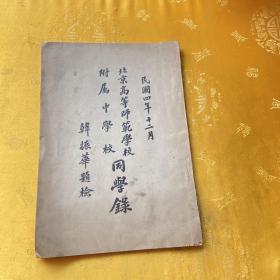 民國四年十二月
北京高等師範學校
附属中學校
同學錄
韓振華題檢